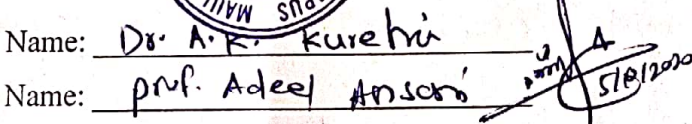 Name: Dr. A. K. Kureshi
Name: Prof. Adeel Ansari
5/8/2020